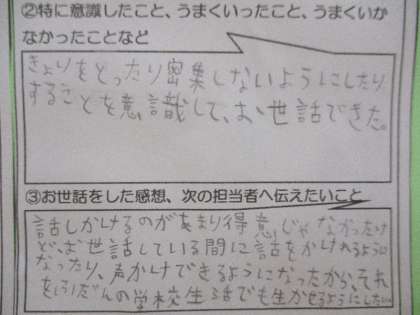 ②特に意識したこと、うまくいったこと、うまくいか
なかったことなど
きょりをとったり密集しないようにしたり
することを意識して、お世話できた。
③お世話をした感想、次の担当者へ伝えたいこと
話しかけるのがあまり得意じゃなかったけ
ど、お世話している間に話をかけれるように
なったり、声かけできるようになったから、それ
をふだんの学校生活でも生かせるようにしたい